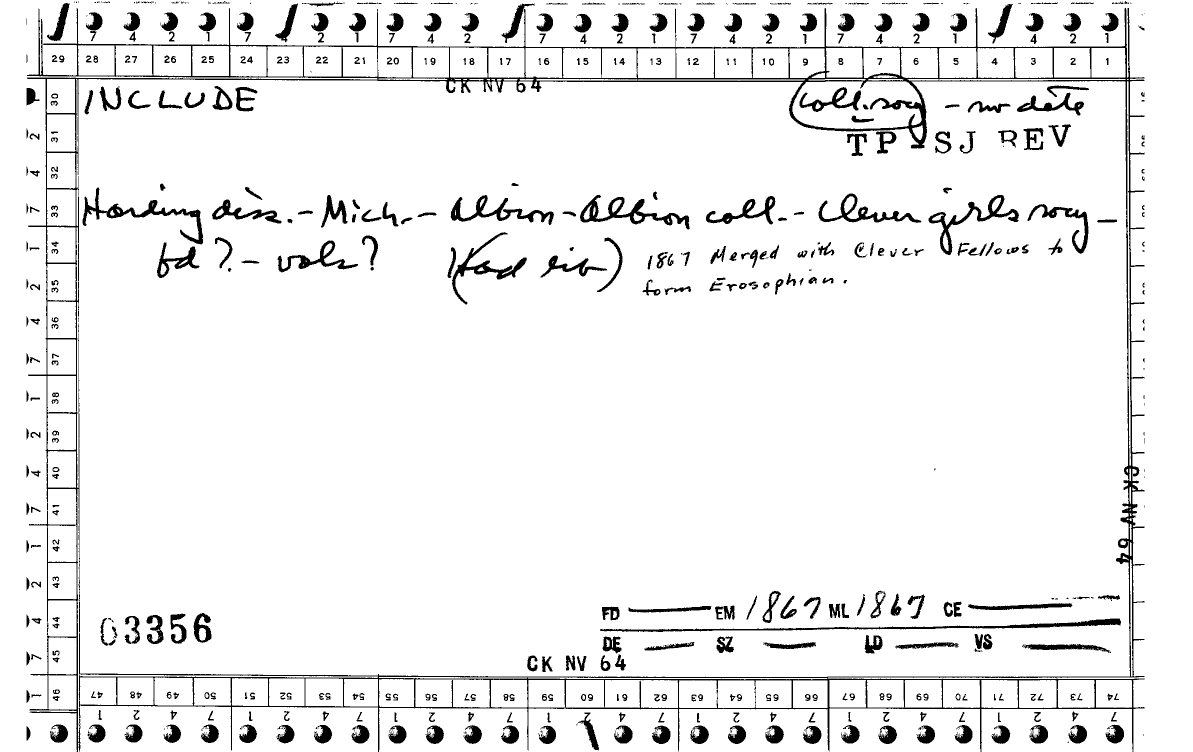 7 4 2 1 7 2 1 7 4 2 7 4 2 1 7 4 2 1 7 4 2 1 7 4 2 1
29 28 27 26 25 24 23 22 21 20 19 18 17 16 15 14 13 12 11 10 9 8 7 6 5 4 3 2 1
CK NV 64
30 INCLUDE coll. socy - no date
2 31 TP-SJ REV
4 32
7 33 Harding diss. - Mich. - Albion - Albion coll. - Clever girls socy -
1 34 fd ? - vols ? (Had lib) 1867 Merged with Clever Fellows to
2 35 form Erosophian.
4 36
7 37
1 38
2 39
4 40
7 41
CK NV 64
1 42
2 43
4 44 03356 FD EM 1867 ML 1867 CE
7 45 DE SZ LD VS
CK NV 64
1 46 47 48 49 50 51 52 53 54 55 56 57 58 59 60 61 62 63 64 65 66 67 68 69 70 71 72 73 74
1 2 4 7 1 2 4 7 1 2 4 7 1 2 4 7 1 2 4 7 1 2 4 7 1 2 4 7